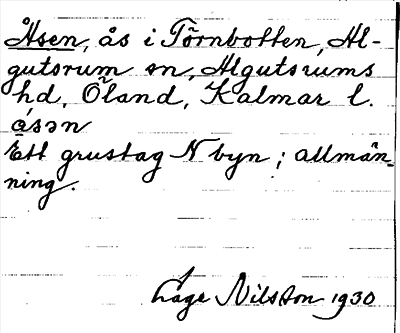 Åsen, ås i Törnbotten, Al-
gutsrum sn, Algutsrums
hd, Öland, Kalmar l.
ǻsən
Ett grustag N byn; allmän-
ning.
Åge Nilsson 1930